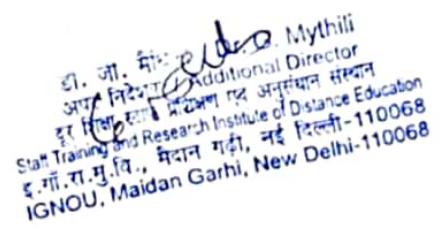 डा. जी. Mythili
अपर Additional Director
दूर शिक्षा स्टाफ प्रशिक्षण एवं अनुसंधान संस्थान
Staff Training and Research Institute of Distance Education
इ.गाँ.रा.मु.वि., मैदान गढ़ी, नई दिल्ली-110068
IGNOU, Maidan Garhi, New Delhi-110068